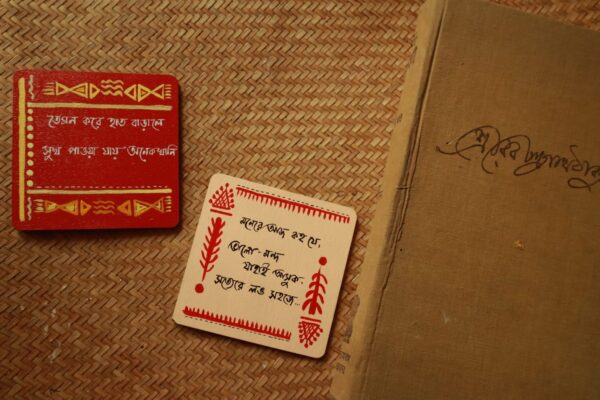 তেমন করে হাত বাড়ালে
সুখ পাওয়া যায় অনেকখানি
মনেরে আজ কহ যে,
ভালো-মন্দ
যাহাই আসুক,
সত্যেরে লও সহজে...
শ্রীরবীন্দ্রনাথ ঠাকুর